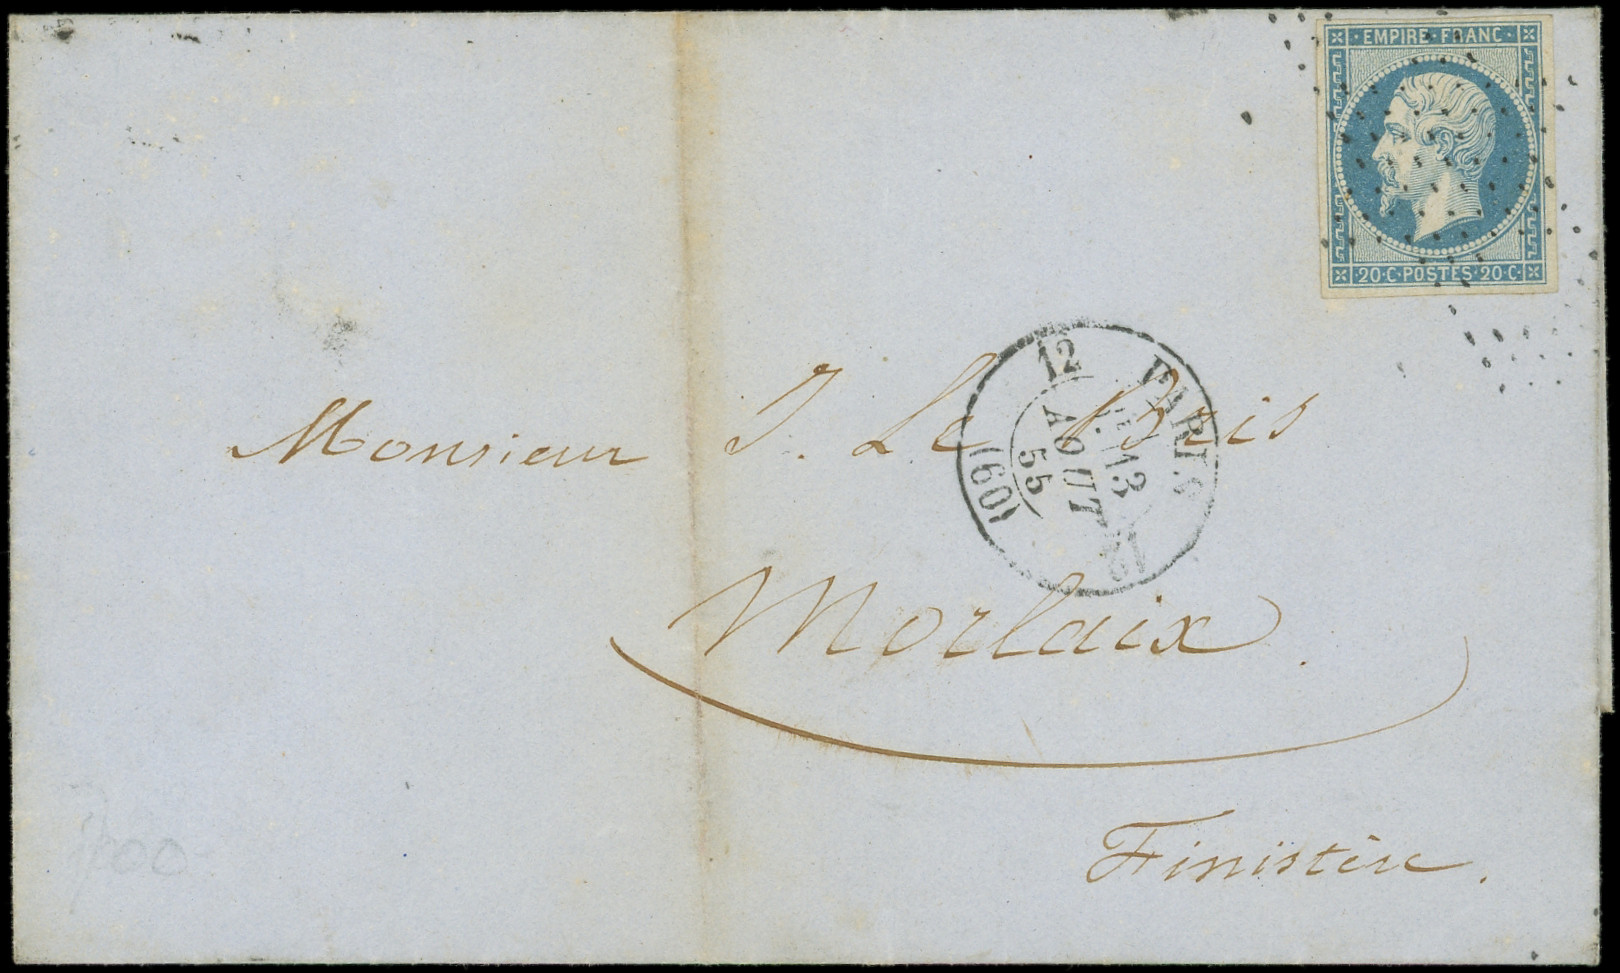 · EMPIRE · FRANC ·
20 · C · POSTES · 20 · C ·
PARIS
12
13
AOUT
55
12
(60)
Monsieur J. Le Bris
Morlaix.
Finistère.